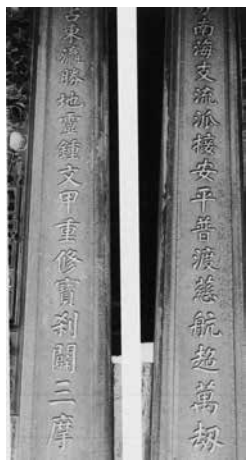 南海支流派接安平普渡慈航超萬刼
東瀛勝地靈鍾文甲重修寶剎闢三摩